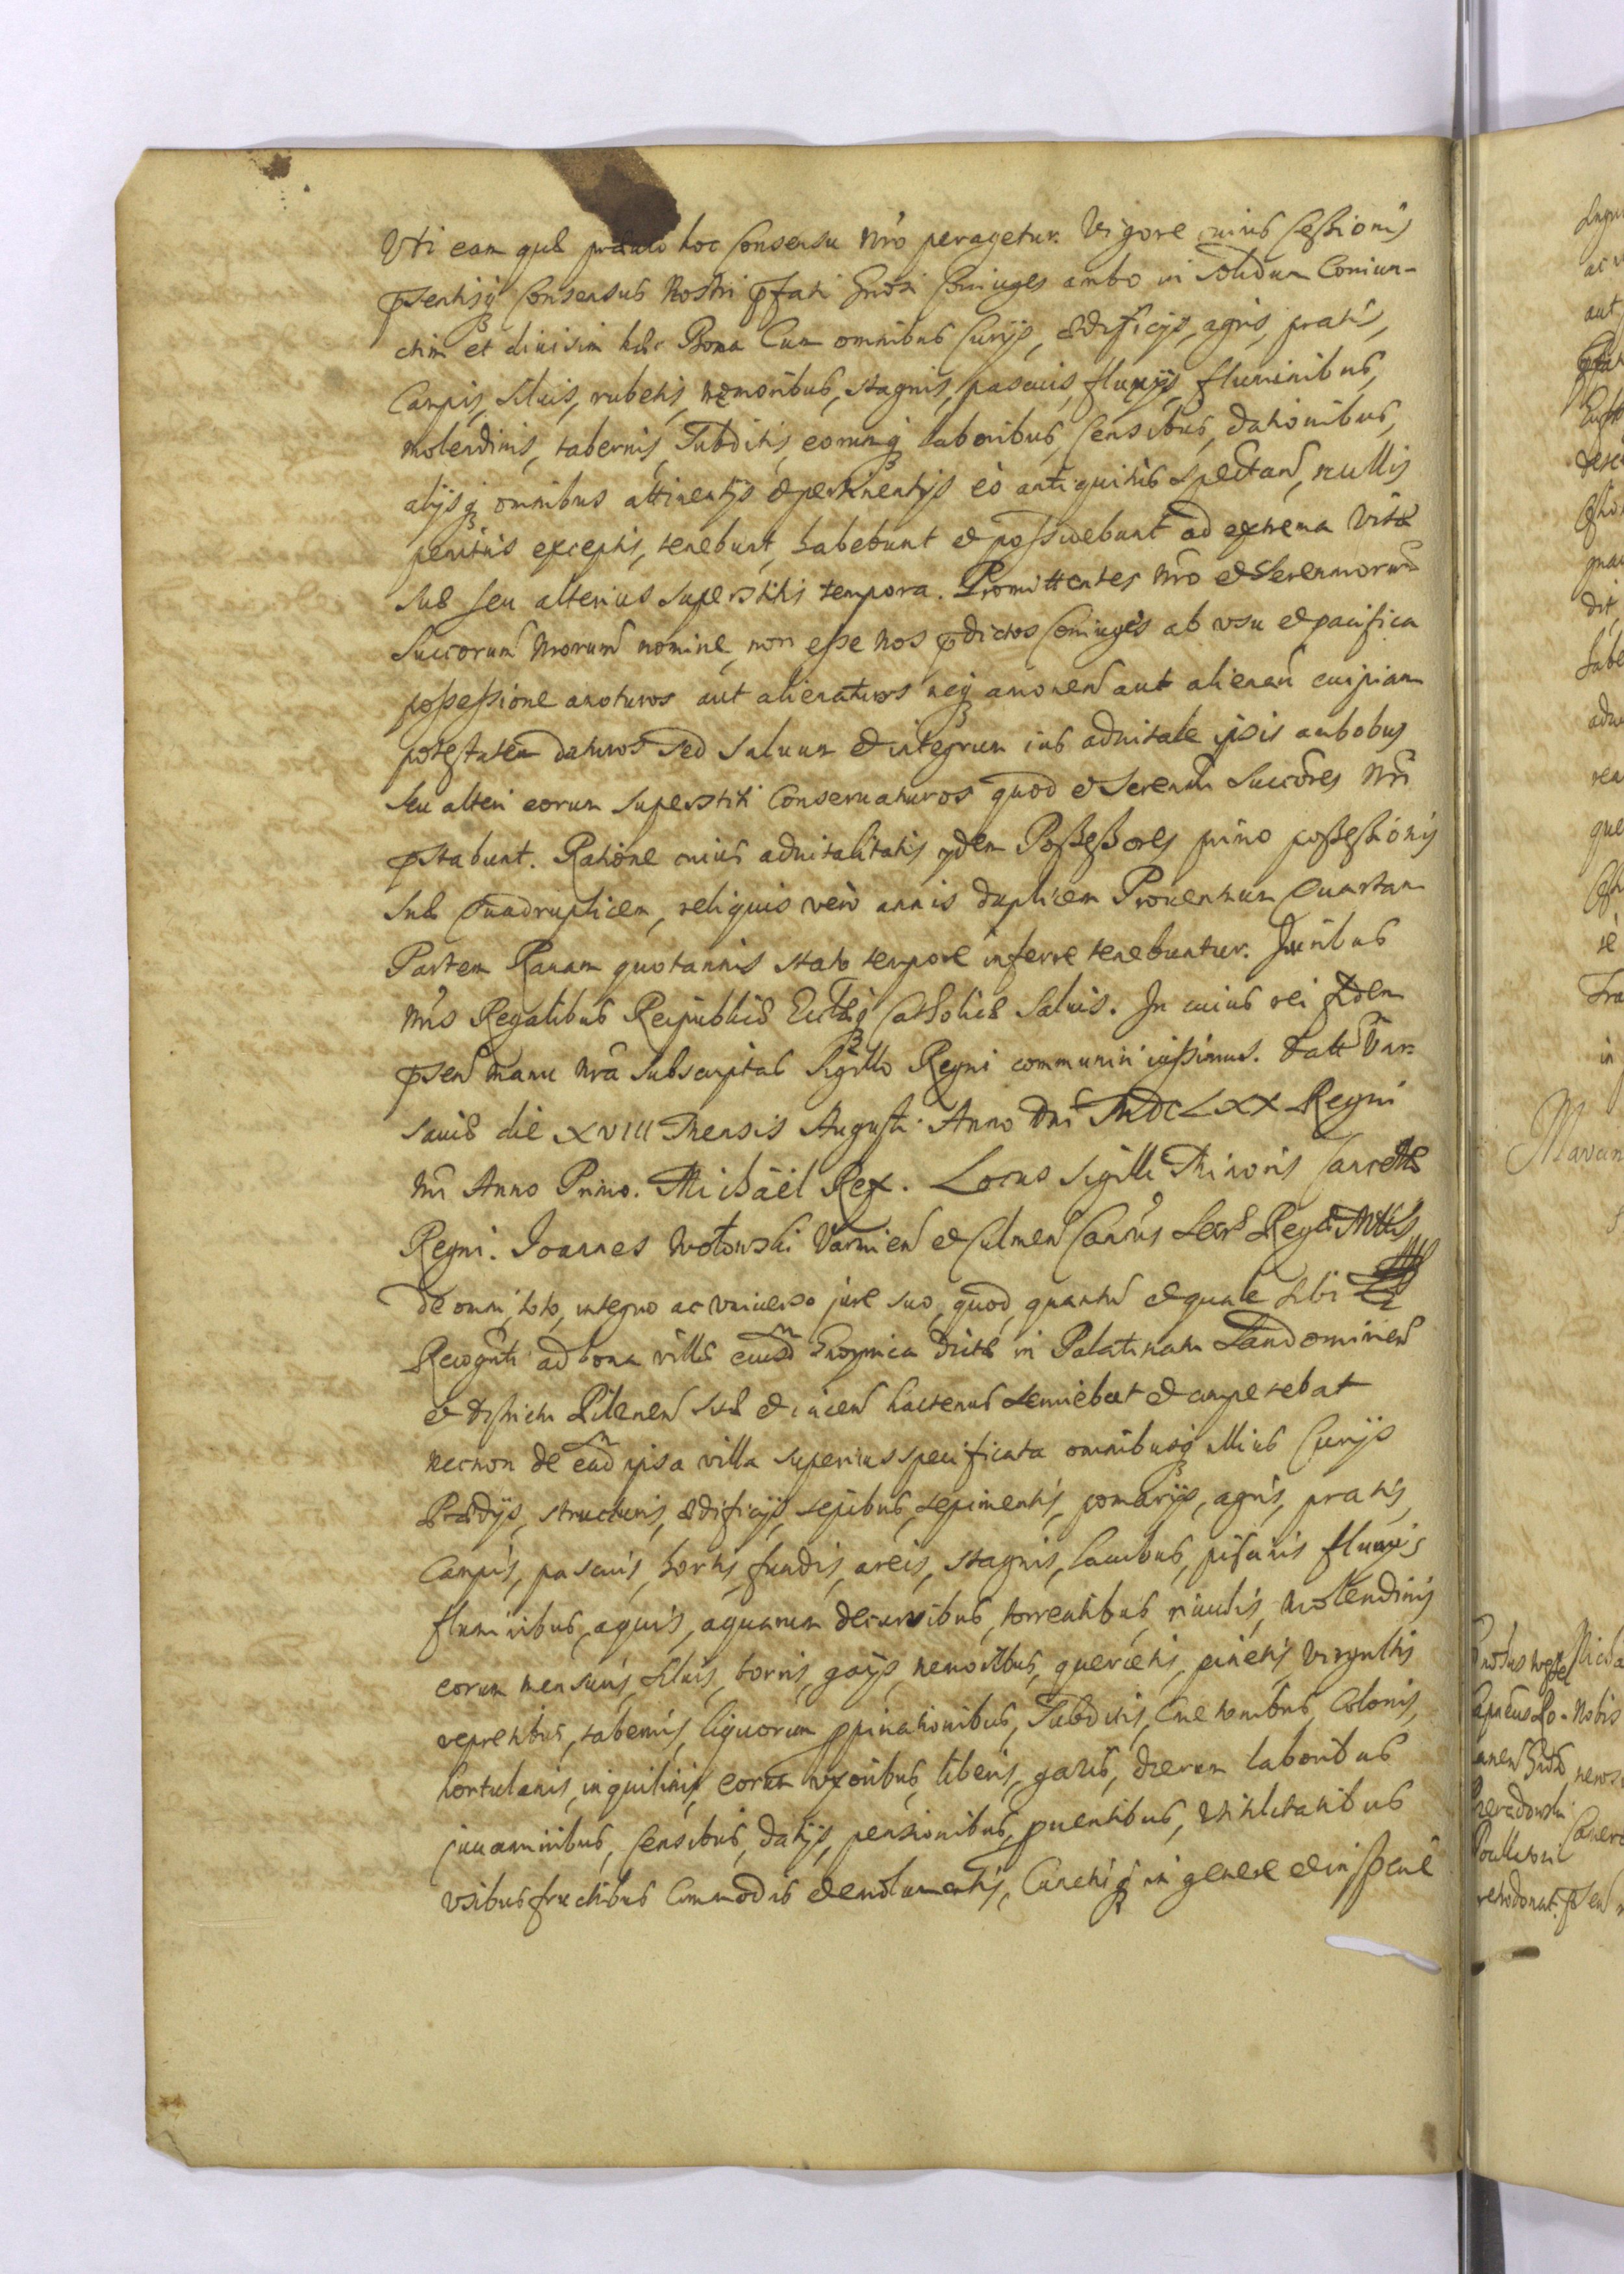 Uti eam quæ hoc Consensu Nr̃o peragetur. Vigore cuius Cessionis
p̃sentisq; Consensus Nostri p̃fati Gnõsi Coniuges ambo in solidum Coniun-
ctim et diuisim hæc Bona Cum omnibus Curijs, ædificijs, agris, pratis,
Campis, siluis, rubetis, nemoribus, stagnis, pascuis, fluvijs, fluminibus,
molendinis, tabernis, Subditis, eorumq; laboribus, Censibus, dationibus,
alijsq; omnibus attinentijs et pertinentijs eò antiquitùs spectañ, nullis
penitùs exceptis, tenebunt, habebunt et possidebunt ad extrema vitæ
suæ seu alterius superstitis tempora. Promittentes Nr̃o et Serenmorum
Succorum Nrorum nomine, non esse Nos p̃dictos Coniuges ab vsu et pacifica
possessione amoturos aut alienaturos neq; amoueñ aut alienañ cuipiam
potestatem daturos sed saluum et integrum ius aduitale ipsis ambobus
seu alteri eorum superstiti Conseruaturos quod et Serenmi Succores Nr̃i
p̃stabunt. Ratione cuius aduitalitatis ijdem Possessores primo possessionis
suæ Quadruplicem, reliquis verò annis duplicem Prouentuum Quartam
Partem Rauam quotannis stato tempore inferre tenebuntur. Juribus
Nr̃is Regalibus Reipublicæ Ecclæq; Catholicæ Saluis. In cuius rei fidem
p̃señ manu Nr̃a subscriptas Sigillo Regni communiri iussimus. Datt Var-
sauiæ die XVIII Mensis Augusti Anno Dni MDCLXX Regni
Nr̃i Anno Primo. Michaël Rex. Locus Sigilli Minoris Cancellæ
Regni. Joannes Wołowski Varmieñ et Culmeñ Canõus
de omni, toto, integro ac vniuerso jure suo, quod, quantũ et quale sibi
Recognti ad bona villæ dictæ in Palatinatu Sandomirieñ
et districtu Pilzneñ hactenus seruiebat et competebat
necnon de ead ipsa villa superius specificata omnibusq; illius Curijs
Prædijs, structuris, ædificijs, sepibus, sepimentis, pomarijs, agris, pratis,
Campis, pascuis, hortis, fundis, areis, stagnis, lacubus, piscinis fluuijs
fluminibus, aquis, aquarum decursibus, torrentibus, riuulis, molendinis
eorum mensuris, siluis, borris, gaijs, nemoribus, quercetis, pinetis, virgultis
vepretibus, tabernis, liquorum p̃pinationibus, Subditis, Cmetonibus, Colonis,
hortulanis, inquilinis, eorum vxoribus, liberis, gazis, dierum laboribus
juuaminibus, Censibus, datijs, pensionibus, p̃uentibus, vtilitatibus
vsibusfructibus Commodis et emolumentis, Cunctisq; in genere et in specie